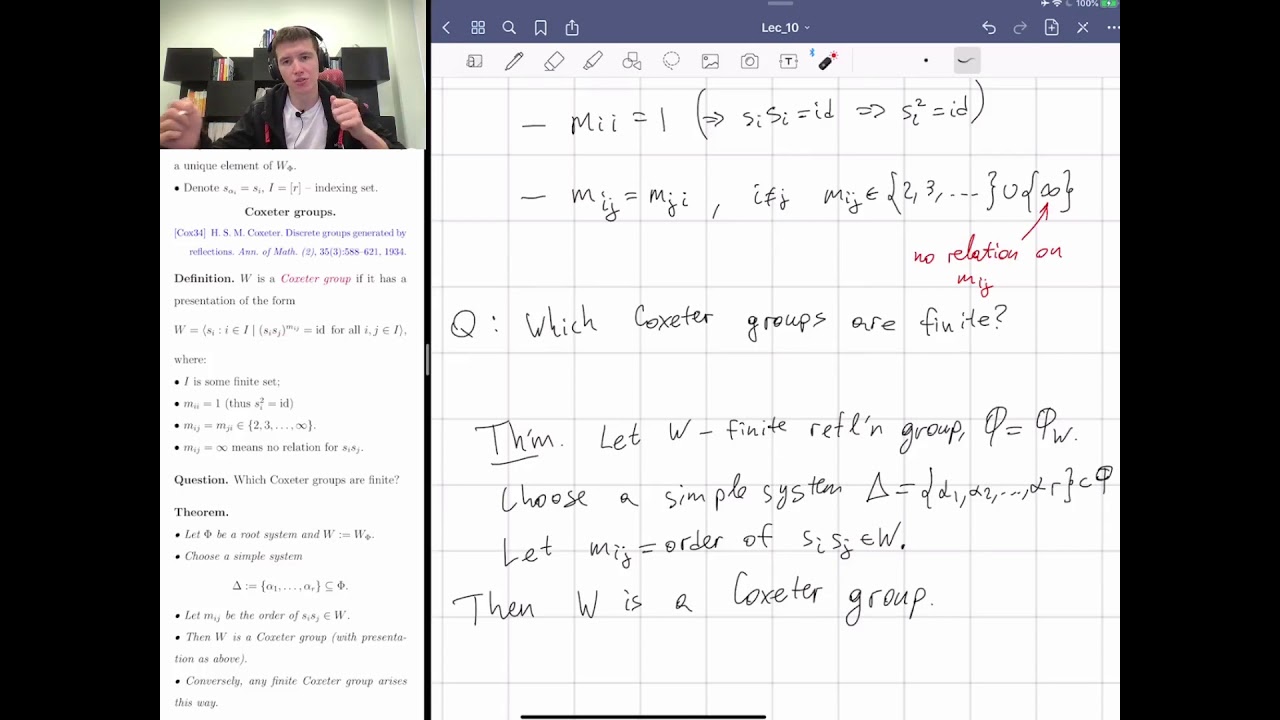 100%
Lec_10
a unique element of W_Φ.
• Denote s_{α_i} = s_i, I = [r] – indexing set.
Coxeter groups.
[Cox34] H. S. M. Coxeter. Discrete groups generated by
reflections. Ann. of Math. (2), 35(3):588–621, 1934.
Definition. W is a Coxeter group if it has a
presentation of the form
W = ⟨s_i : i ∈ I | (s_i s_j)^{m_{ij}} = id for all i, j ∈ I⟩,
where:
• I is some finite set;
• m_{ii} = 1 (thus s_i^2 = id)
• m_{ij} = m_{ji} ∈ {2, 3, . . . , ∞}.
• m_{ij} = ∞ means no relation for s_i s_j.
Question. Which Coxeter groups are finite?
Theorem.
• Let Φ be a root system and W := W_Φ.
• Choose a simple system
Δ := {α_1, . . . , α_r} ⊆ Φ.
• Let m_{ij} be the order of s_i s_j ∈ W.
• Then W is a Coxeter group (with presenta-
tion as above).
• Conversely, any finite Coxeter group arises
this way.
— m_{ii} = 1 (⇒ s_i s_i = id ⇒ s_i^2 = id)
— m_{ij} = m_{ji} , i≠j m_{ij} ∈ {2, 3, ....} ∪ {∞}
no relation on
m_{ij}
Q : Which Coxeter groups are finite?
Th'm. Let W – finite refl'n group, Φ = Φ_W.
Choose a simple system Δ = {α_1, α_2, ..., α_r} ⊂ Φ
Let m_{ij} = order of s_i s_j ∈ W.
Then W is a Coxeter group.